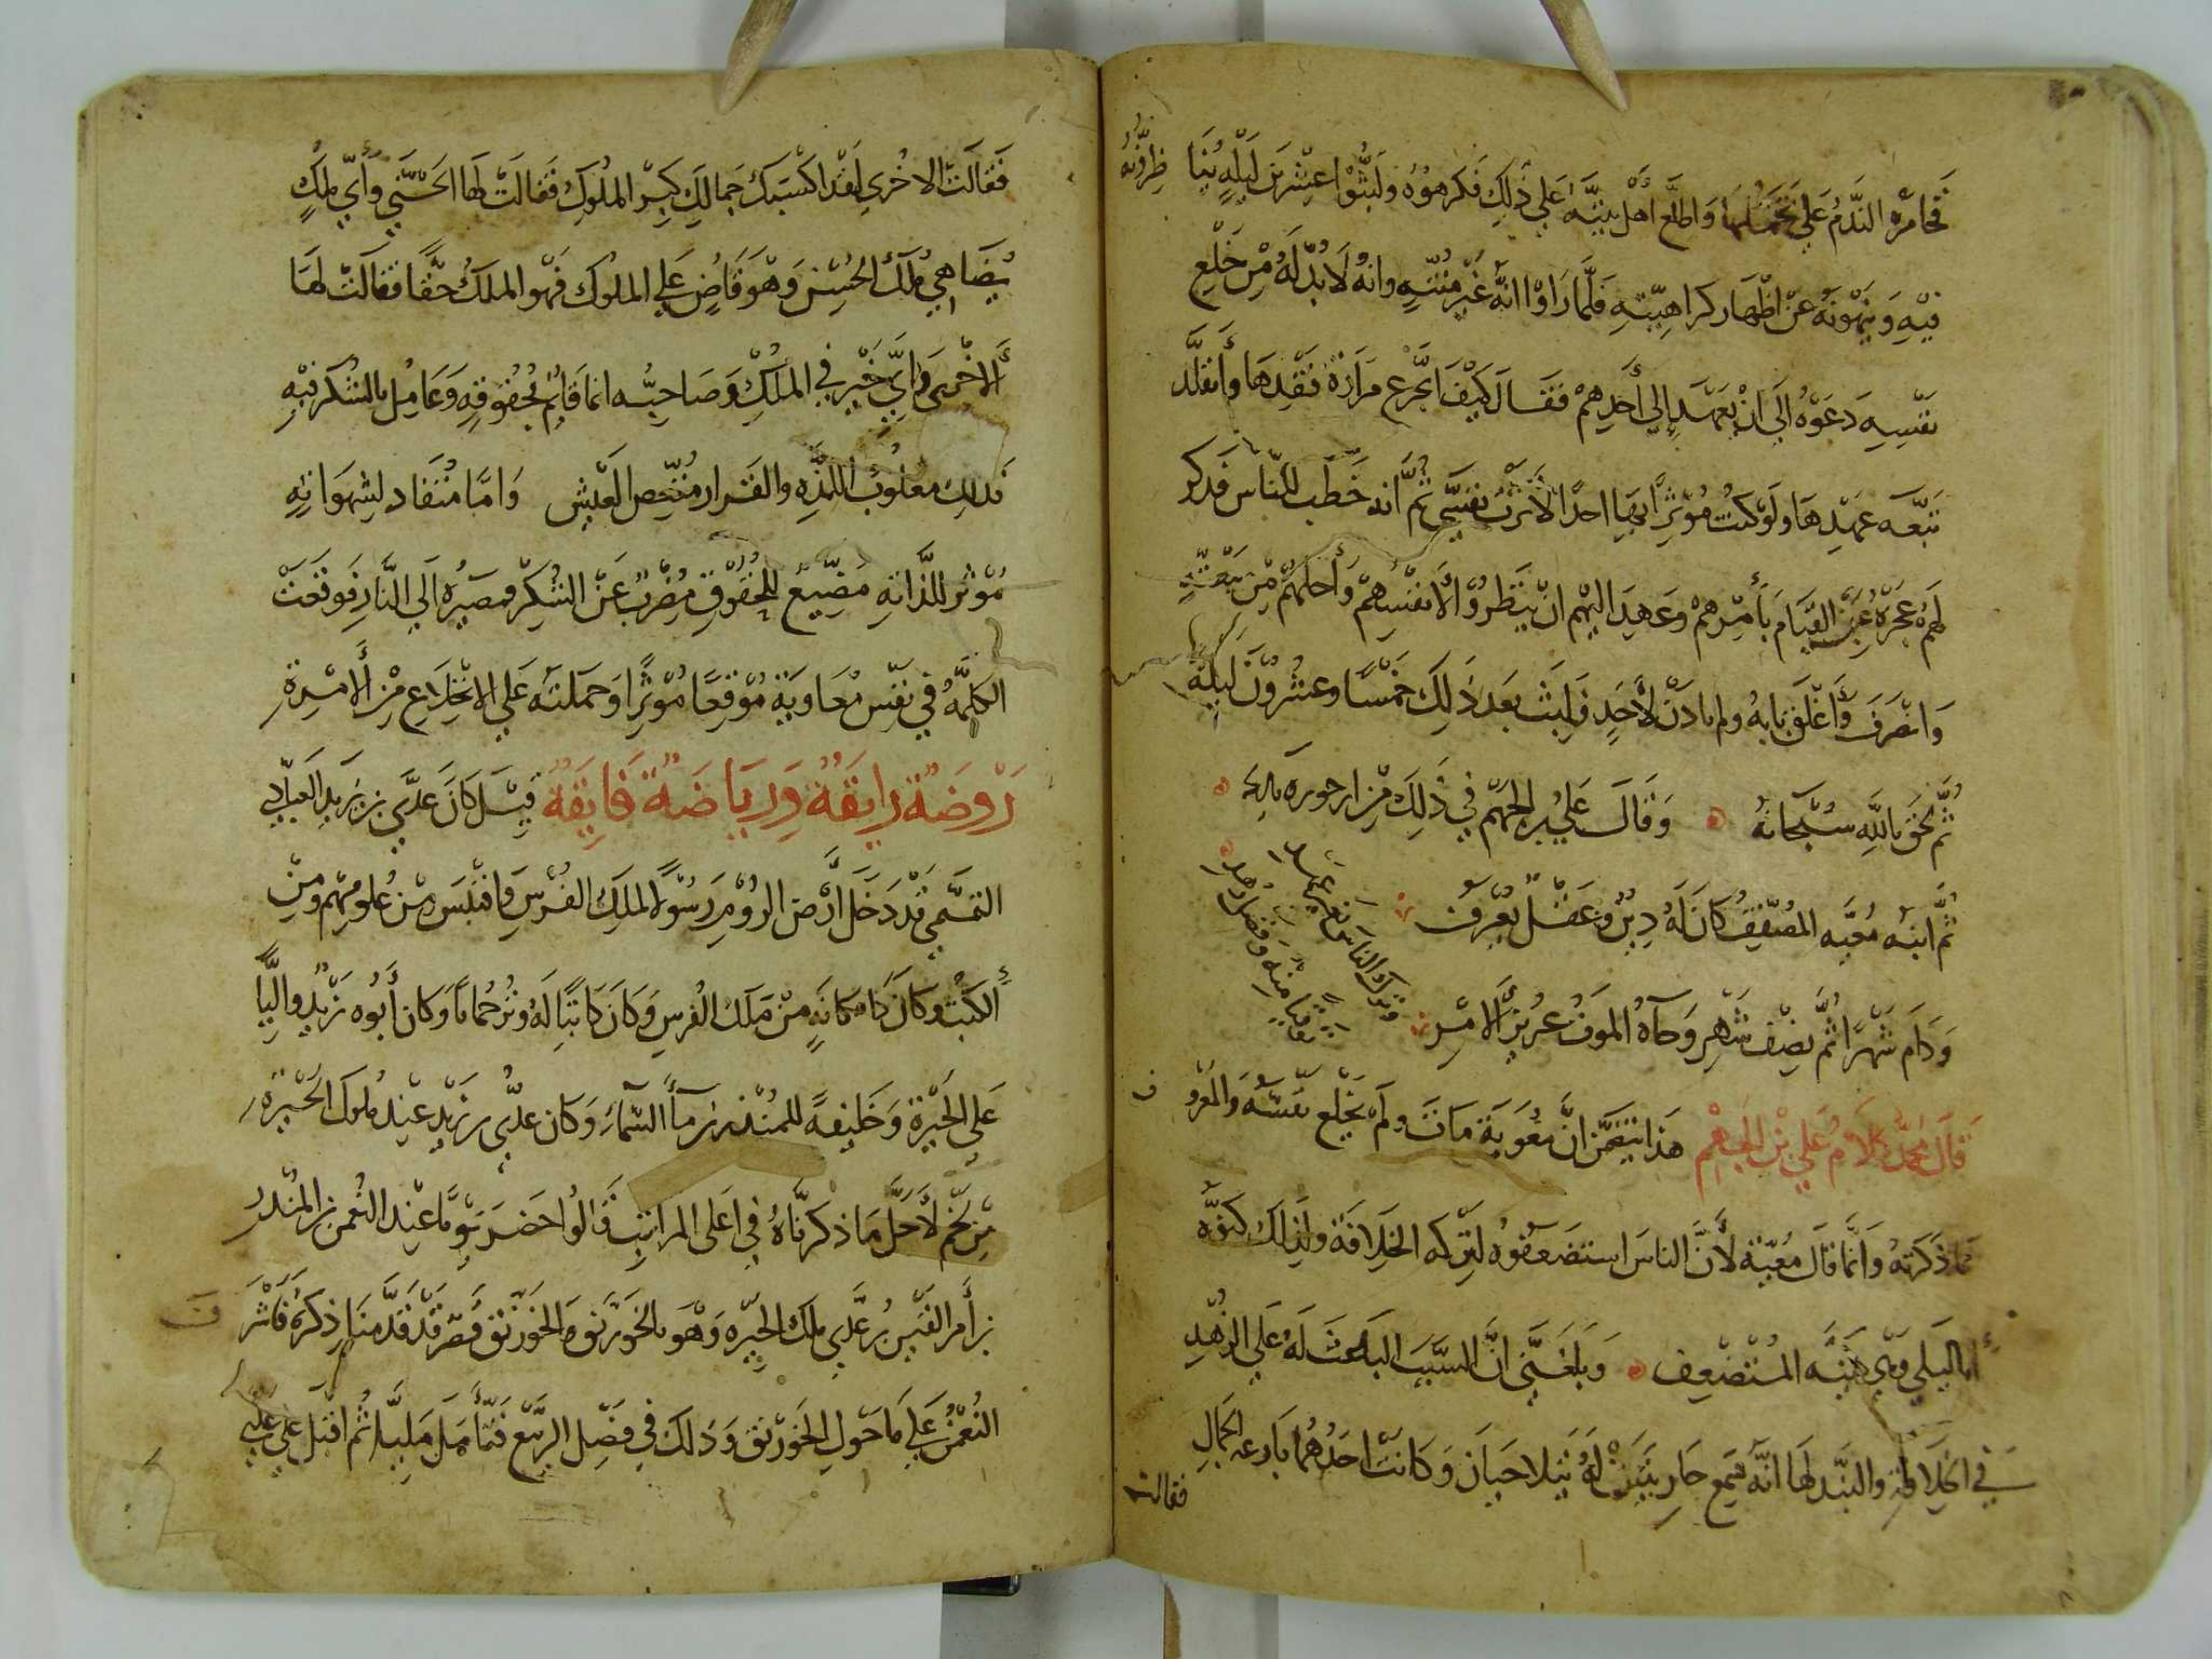 فخامره الندم على تحملها واطلع اهل بيته على ذلك فكرهوه ولبثوا عشرين ليلة يناظرونه
فيه وينهونه عن اظهار كراهيته فلما راوا انه غير منته وانه لا بد له من خلع
نفسه دعوه الى ان يعهد الى أحدهم فقال كيف اتجرع مرارة فقدها وأتقلد
تبعة عهدها ولو كنت مؤثرا بها احدا لآثرت نفسي ثم انه خطب للناس فذكر
لهم عجزه عن القيام بأمرهم وعهد اليهم ان ينظروا لأنفسهم وأحلهم من بيعته
وانصرف وأغلق بابه ولم ياذن لأحد فلبث بعد ذلك خمسا وعشرون ليلة
ثم لحق بالله سبحانه وقال علي بن الجهم في ذلك من ارجوزة
ثم ابنه المضعف كان له دين وعقل يعرف
ودام شهرا ثم نصف شهر وجآه الموت عزيز الامر
وترك الناس بغير عهد
قال محمد كلام علي بن الجهم هذا يتضمن ان معوية مات ولم يخلع نفسه والمعروف
ما ذكرته وانما قال لأن الناس استضعفوه لتركه الخلافة ولذلك كنوه
ابا ليلى وهي كنية المستضعف وبلغني ان السبب الباعث له على الزهد
في الخلافة والنبذ لها انه سمع جاريتين له وكانت احدهما بارعة الجمال
فقالت
فقالت الاخرى لقد اكسبك جمالك كبر الملوك فقالت لها الحسنى وأي ملك
يضاهي ملك الحسن وهو قاض على الملوك فهو الملك حقا فقالت لها
ألاخرى وأي خير في الملك وصاحبه اما قائم بحقوقه وعامل بالشكر فيه
فذلك مسلوب اللذة والقرار منغص العيش واما منقاد لشهواته
مؤثر للذاته مضيع للحقوق مضرب عن الشكر فمصيره الى النار فوقعت
الكلمة في نفس معاوية موقعا مؤثرا وحملته على الانخلاع من ألامرة
روضة رايقة ورياضة فايقة قيل كان عدي بن زيد العبادي
التميمي قد دخل أرض الروم رسولا لملك الفرس واقتبس من علومهم ومن
ألكتب وكان ذا مكانة من ملك الفرس وكان كاتبا له وترجمانا وكان أبوه زيد واليا
على الحيرة وخليفة للمنذر بن مآ السمآء وكان عدي بن زيد عند ملوك الحيرة
من لخم لأجل ما ذكرناه في اعلى المراتب قالوا حضر يوما عند النعمن بن المنذر
بن أمرء القيس بن عدي ملك الحيرة وهو بالخورنق والخورنق قصر قد قدمنا ذكره فاشرف
النعمن على ما حول الخورنق وذلك في فصل الربيع فتأمل مليا ثم اقبل على عدي